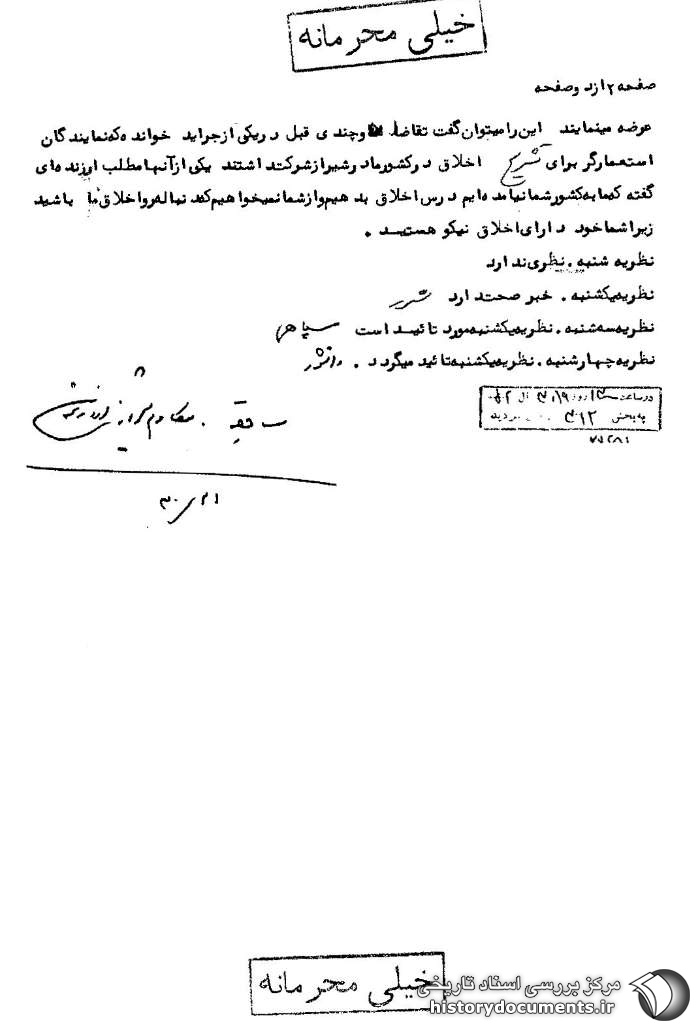 خیلی محرمانه
صفحه ۲ از دو صفحه
عرضه مینمایند این را میتوان گفت تقاضا. وچندی قبل در یکی از جراید خوانده که نمایندگان
استعمارگر برای تشریح اخلاق در کشور ما در شیراز شرکت داشتند یکی از آنها مطلب ارزنده‌ای
گفته که ما به کشور شما نیامده‌ایم درس اخلاق بدهیم و از شما نمیخواهیم که دنباله رو اخلاق ما باشید
زیرا شما خود دارای اخلاق نیکو هستید.
نظریه شنبه. نظری ندارد
نظریه یکشنبه. خبر صحت دارد
نظریه سه شنبه. نظریه یکشنبه مورد تائید است سپاهی
نظریه چهارشنبه. نظریه یکشنبه تائید میگردد. دانشور
در ساعت روز
به بخش ۳۱۲
خیلی محرمانه
مرکز بررسی اسناد تاریخی
historydocuments.ir